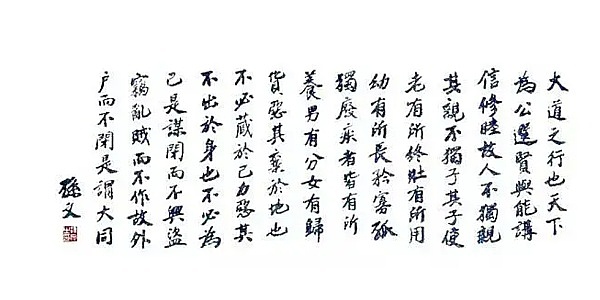 大道之行也天下
為公選賢與能講
信修睦故人不獨親
其親不獨子其子使
老有所終壯有所用
幼有所長矜寡孤
獨廢疾者皆有所
養男有分女有歸
貨惡其棄於地也
不必藏於己力惡其
不出於身也不必為
己是謀閉而不興盜
竊亂賊而不作故外
戶而不閉是謂大同
孫文